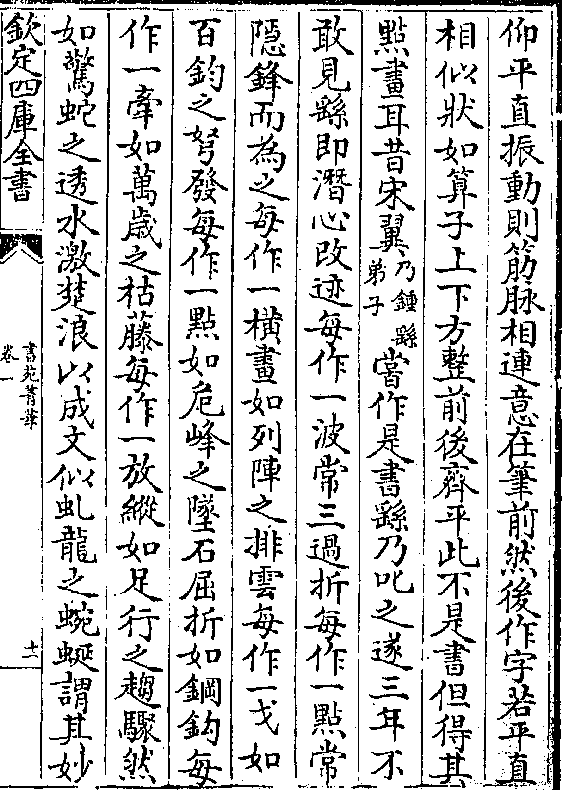 仰平直振動則筋脉相連意在筆前然後作字若平直
相似狀如算子上下方整前後齊平此不是書但得其
點畫耳昔宋翼乃鍾繇弟子當作是書繇乃叱之遂三年不
敢見繇即潛心改迹每作一波常三過折每作一點常
隱鋒而為之每作一橫畫如列陣之排雲每作一戈如
百鈞之弩發每作一點如危峰之墜石屈折如鋼鈎每
作一牽如萬歲之枯藤每作一放縱如足行之趨驟然
如驚蛇之透水激楚浪以成文似虬龍之蜿蜒謂其妙
欽定四庫全書
書苑菁華
卷一
十一